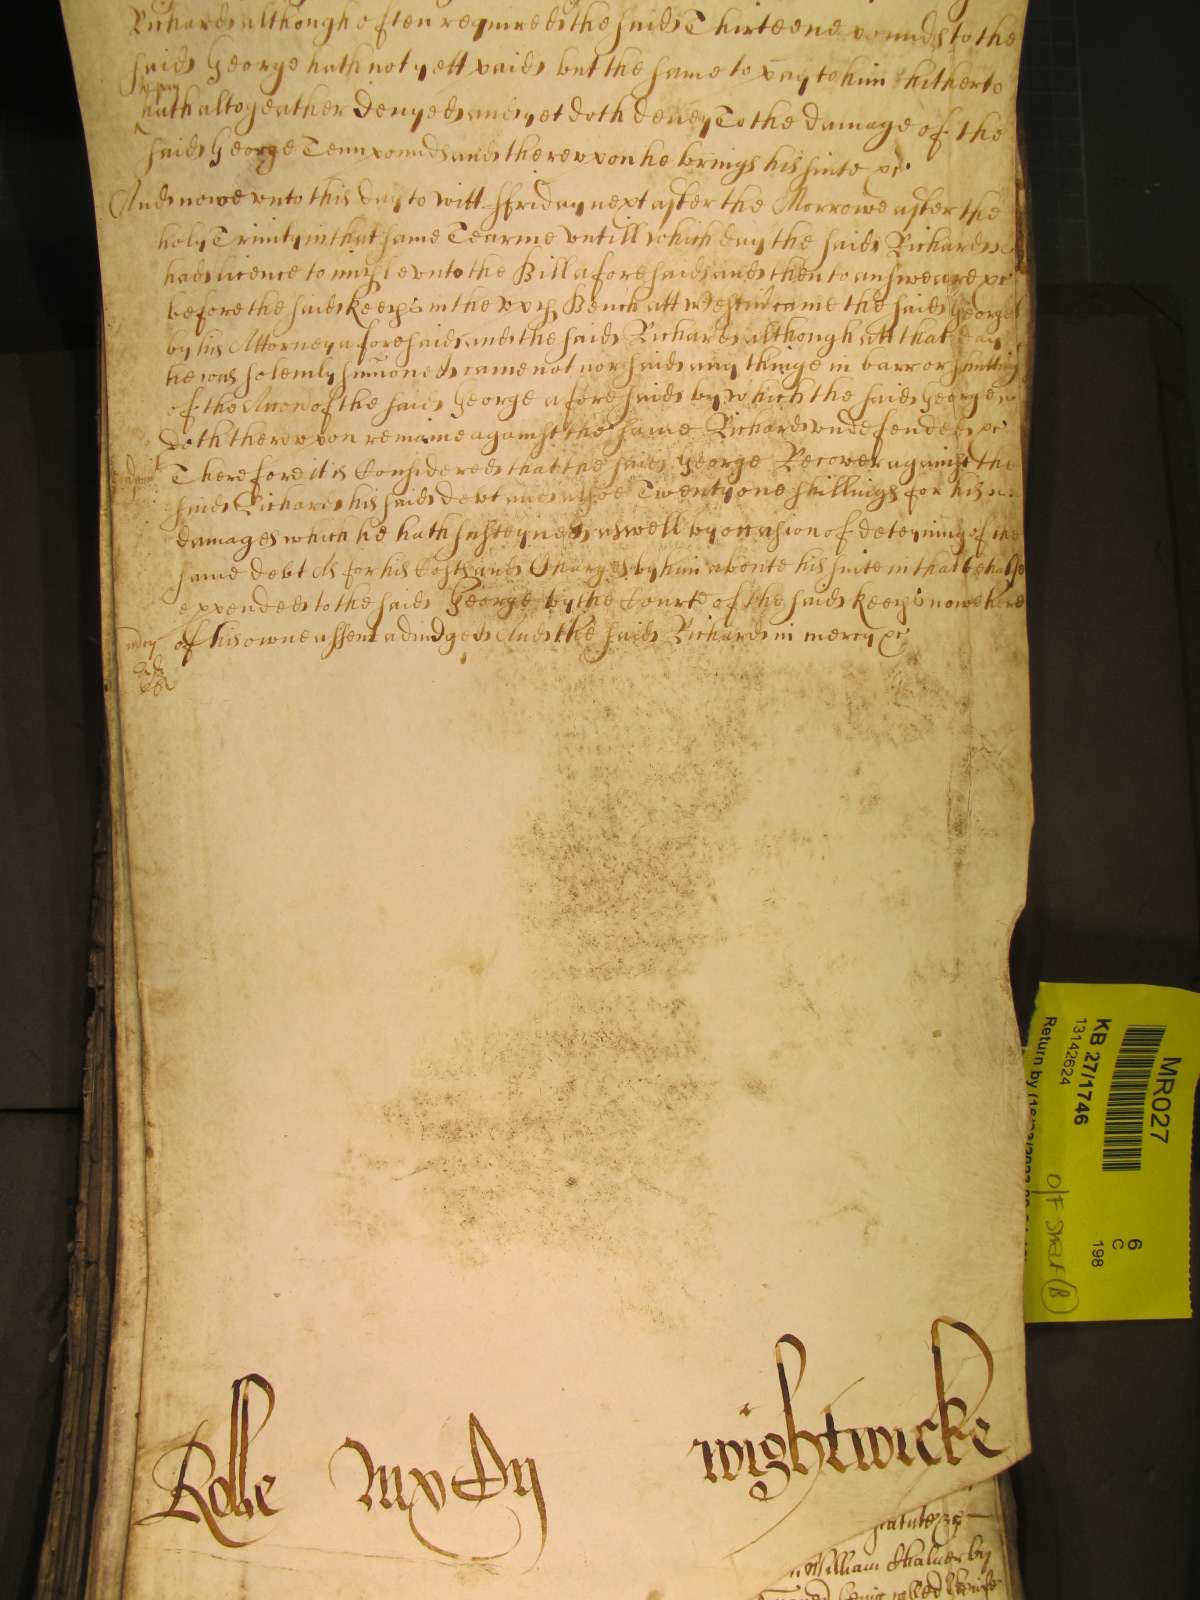 Richard although often required the said Thirteene pounds to the
said George hath not yett paid but the same to pay to him hitherto
to pay
hath altogeather denyed and yet doth deney To the damage of the
said George Tenn pounds and thereupon he brings his suite &c
And nowe unto this day to witt ffriday next after the Morrowe after the
holy Trinity in that same Tearme untill which day the said Richard
had licence to imple unto the Bill aforesaid and then to answeare &c
before the said keeps in the upp Bench att Westm came the said George
by his Attorney aforesaid and the said Richard although att that day
he was solemly sumoned came not nor said any thinge in barr or
of the Accon of the said George aforesaid by which the said George
doth thereupon remaine against the same Richard undefended &c
Therefore it is Considered that the said George Recover against the
said Richard his said debt and alsoe Twenty one shillings for his
damages which he hath susteyned aswell by occasion of deteyning of the
same debt As for his Costs and Charges by him aboute his suite in that behalfe
expended to the said George by the Courte of the said keeps nowe here
of his owne assent adiudged And the said Richard in mercy &c
mercy
Rolle
wightwicke
statute
William Chalner by
MR027
KB 27/1746
13142624
Return by
6
C
198